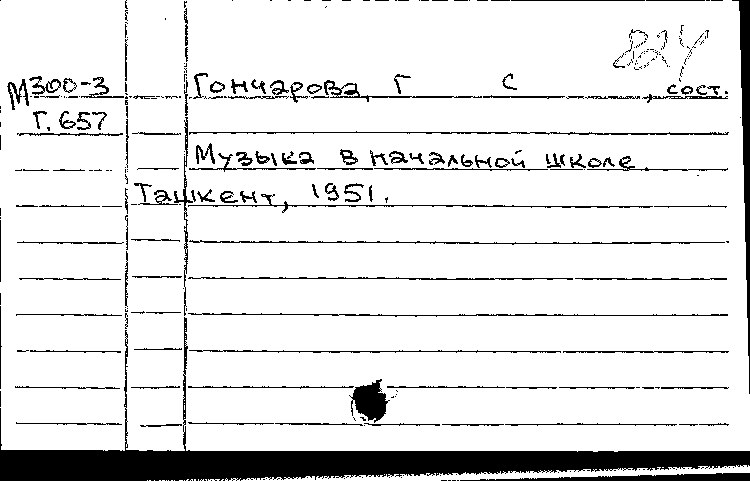 824
М300-3 Гончарова, Г С , сост.
Г.657
Музыка в начальной школе.
Ташкент, 1951.